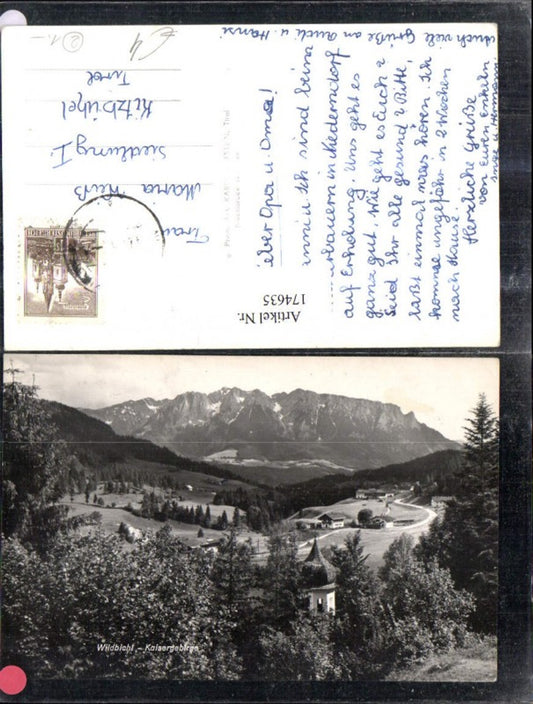 Lieber Opa u. Oma!
ich sind beim
bauern in Niederndorf
auf Erholung. Uns geht es
ganz gut. Wie geht es Euch?
Seid Ihr alle gesund? Bitte,
laßt einmal was hören. Ich
komme ungefähr in 2 Wochen
nach Hause.
Herzliche Grüße
von Euren Enkeln
u. Hermann.
Auch viele Grüße an u. Hansi
Frau
Maria
Siedlung I
Kitzbühel
Tirol
€4
2 1.-
Artikel Nr.
174635
Wildbichl - Kaisergebirge